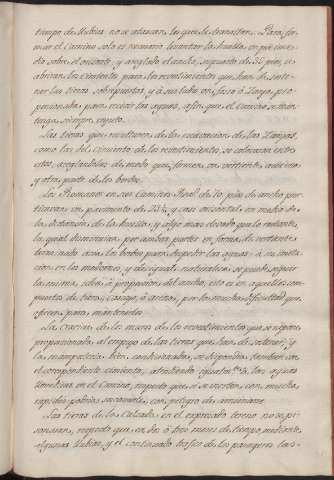 tiempo de lluvias no se atascan los que la transitan. Para for-
mar el Camino solo es necesario levantar la huella un pie en me-
dio sobre el orizonte, y arreglado el ancho, supuesto de 36 pies, se
abriran los Cimientos para los revestimientos que han de soste-
ner las tierras sobrepuestas, y á sus lados un foso ó Zanja pro-
porcionada para recivir las aguas, afin que el Camino se man-
tenga siempre enjuto.
Las tierras que resultaren de la excavacion de las Zanjas,
como las del Cimiento de los revestimientos, se colocaran entre
estos, arreglandolas de modo que formen un vertiente a una
y otra parte de los bordes.
Los Romanos en sus Caminos R.s de 70 pies de ancho prac-
ticavan un pavimento de 23½ y casi orizontal en medio de
la distancia de la huella, y algo mas elevado que lo restante,
la qual disminuian por ambas partes en forma de vertiente
terminado a los bordes para despedir las aguas: á su imita-
cion en los malos, y desigual naturaleza se puede seguir
la misma idea á proporcion del ancho; esto es en aquellos com-
puestos de barro, Cascajo, ó arena, por la mucha dificultad que
ofrecen para mantenerlos.
La crasicie de los muros de los revestimientos que se ponen
proporcionada al empuje de las tierras que han de sostener, y
la mamposteria bien condicionada, se dispondra tambien con
el correspondiente cimiento, atendiendo las aguas
llovedizas en el Camino, respecto que si se vierten con mucha
rapidez podria socavarle, con peligro de arruinarse.
Las tierras de la Calzada en el expresado terreno no se pi-
sonearan, respecto que en dos ó tres meses de tiempo, mediante
algunas lluvias, y el continuado trafico de los pasageros las